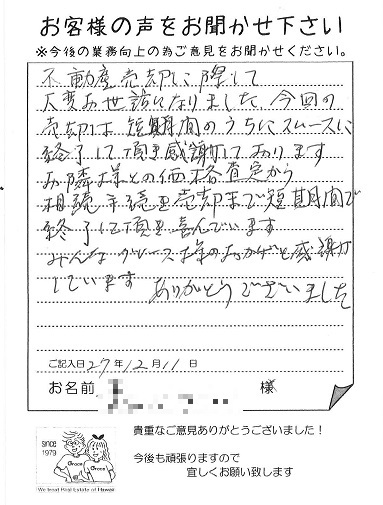 お客様の声をお聞かせ下さい
※今後の業務向上の為ご意見をお聞かせください。
不動産売却に際して
大変お世話になりました。今回の
売却は短期間のうちにスムースに
終了して頂き感謝しております
お隣様との価格査定から
相続手続き売却まで短期間で
終了して頂き喜んでいます
みんなグレース様のおかげと感謝
しています ありがとうございました
ご記入日 27年12月11日
お名前 様
貴重なご意見ありがとうございました！
今後も頑張りますので
宜しくお願い致します
since
1979
Grace
Grace
We treat Real Estate of Hawaii